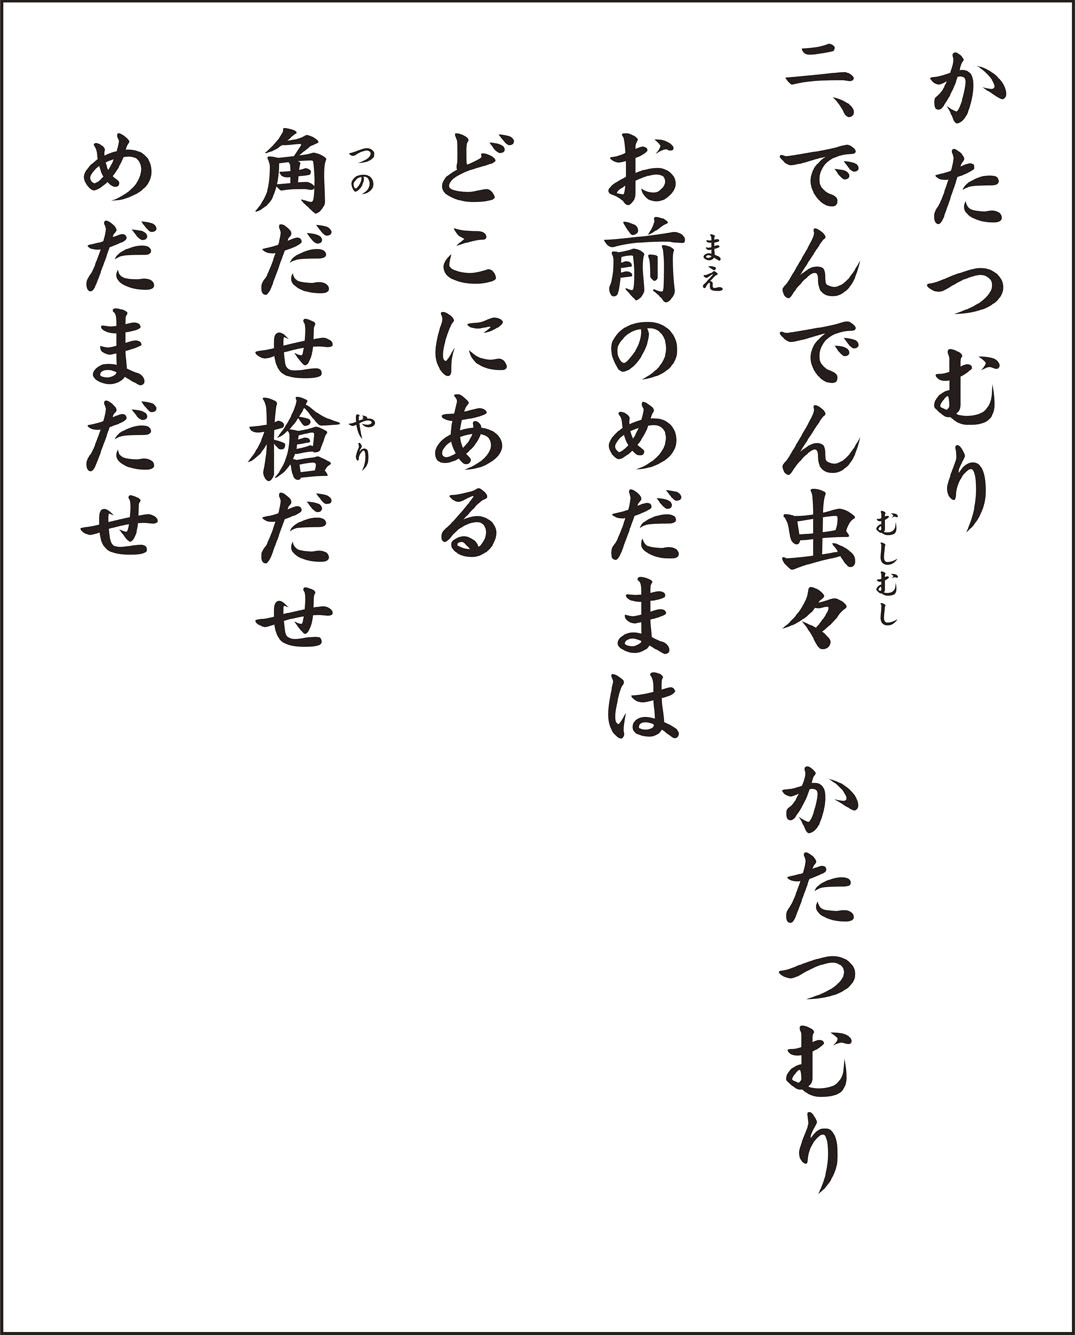 かたつむり
二、でんでん虫々　かたつむり
むしむし
お前のめだまは
まえ
どこにある
角だせ槍だせ
つの
やり
めだまだせ